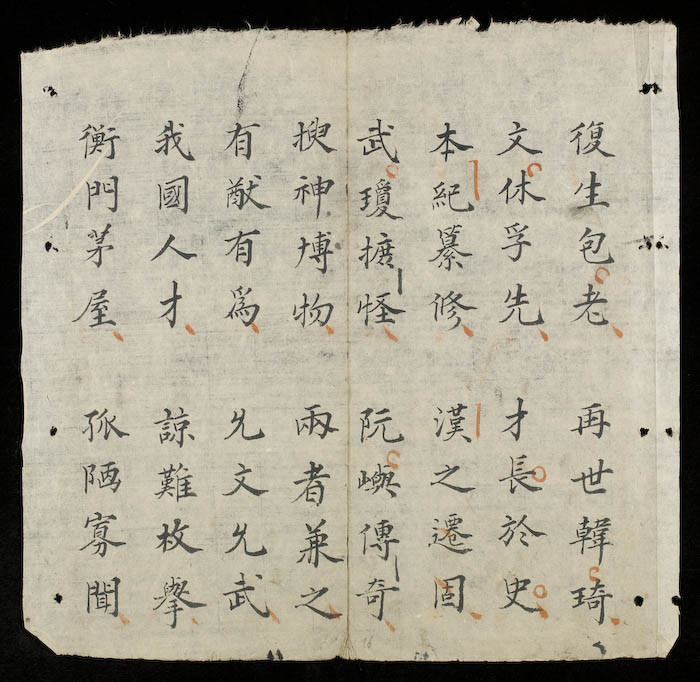 復生包老 再世韓琦
文休孚先 才長於史
本紀纂修 漢之遷固
武瓊摭怪 阮嶼傳奇
搜神博物 兩者兼之
有猷有爲 允文允武
我國人才 諒難枚舉
衡門茅屋 孤陋寡聞